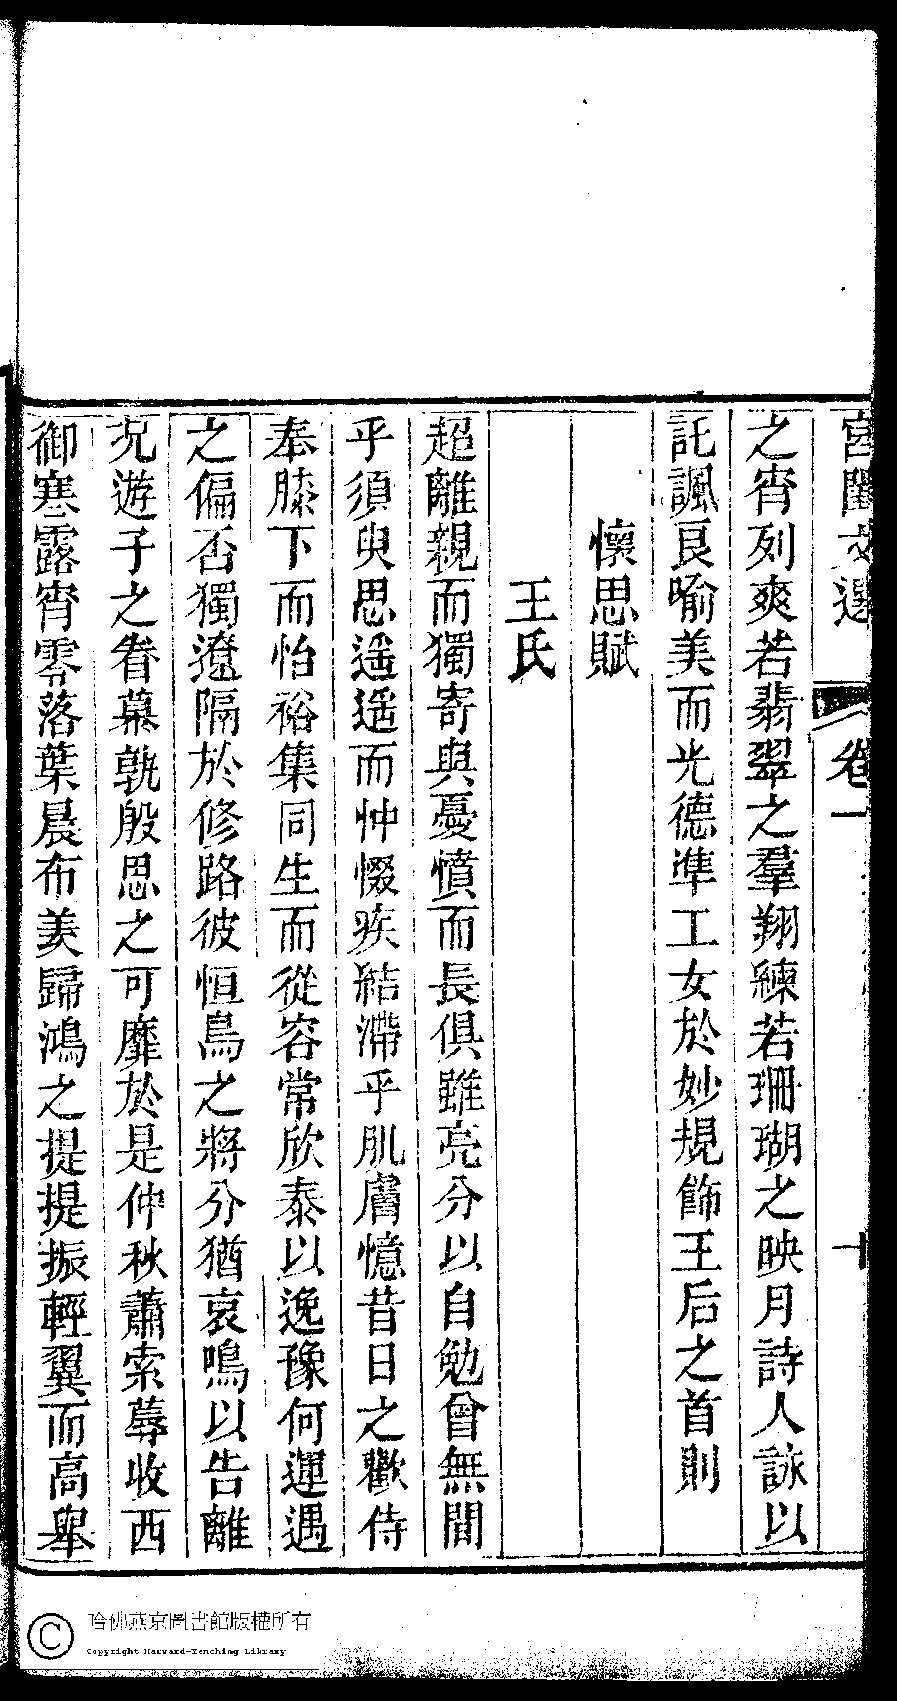 宮閨文選 卷一 十
之宵列爽若翡翠之羣翔練若珊瑚之映月詩人詠以
託諷良喻美而光德準工女於妙規飾王后之首則
懷思賦
王氏
超離親而獨寄與憂憤而長俱雖亮分以自勉曾無間
乎須臾思遥遥而忡惙疾結滯乎肌膚憶昔日之歡侍
奉膝下而怡裕集同生而從容常欣泰以逸豫何運遇
之偏否獨遼隔於修路彼恒鳥之將分猶哀鳴以告離
况遊子之眷慕孰殷思之可靡於是仲秋蕭索蓐收西
御寒露宵零落葉晨布羙歸鴻之提提振輕翼而高舉
哈佛燕京圖書館版權所有
Copyright Harvard-Yenching Library